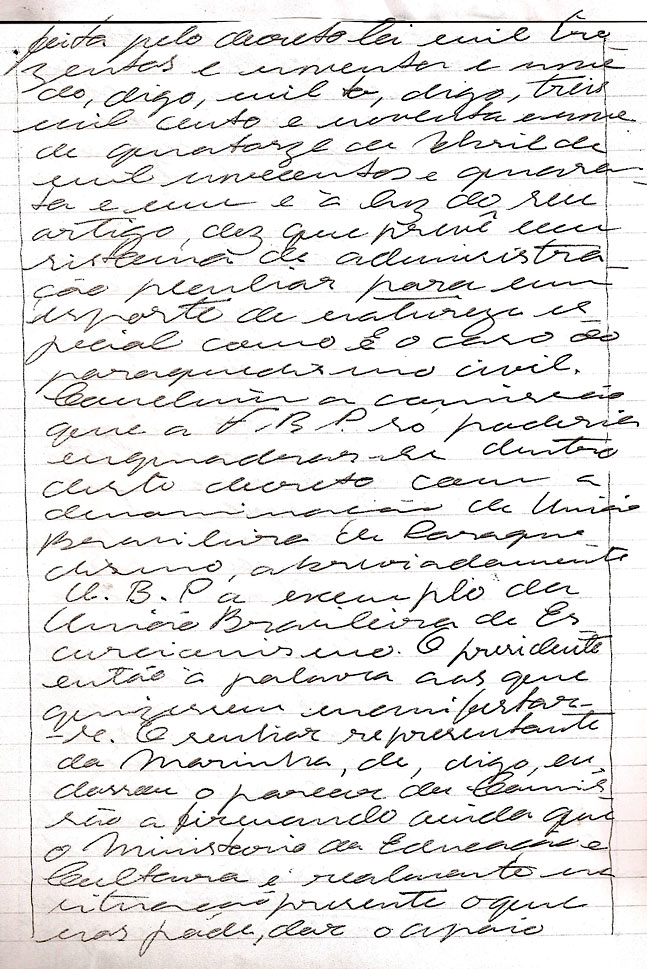 feita pelo decreto lei mil tre
zentos e noventa e nove
do, digo, mil t, digo, três
mil cento e noventa e nove
de quatorze de Abril de
mil novecentos e quaren-
ta e um e à luz do seu
artigo, dez que prevê um
sistema de administra-
ção peculiar para um
esporte de natureza es
pecial como é o caso do
paraquedismo civil.
Concluiu a comissão
que a F.B.P. só poderia
enquadrar-se dentro
deste decreto com a
denominação de União
Brasileira de Paraque
dismo, abreviadamente
U.B.P a exemplo da
União Brasileira de Es
curcionismo. O presidente
então a palavra aos que
quizessem manifestar-
-se. O senhor representante
da Marinha, de, digo, en,
dossou o parecer da Comis
são afirmando ainda que
o Ministerio da Educação e
Cultura é realmente na
situação presente o que
nos póde, dar o apoio